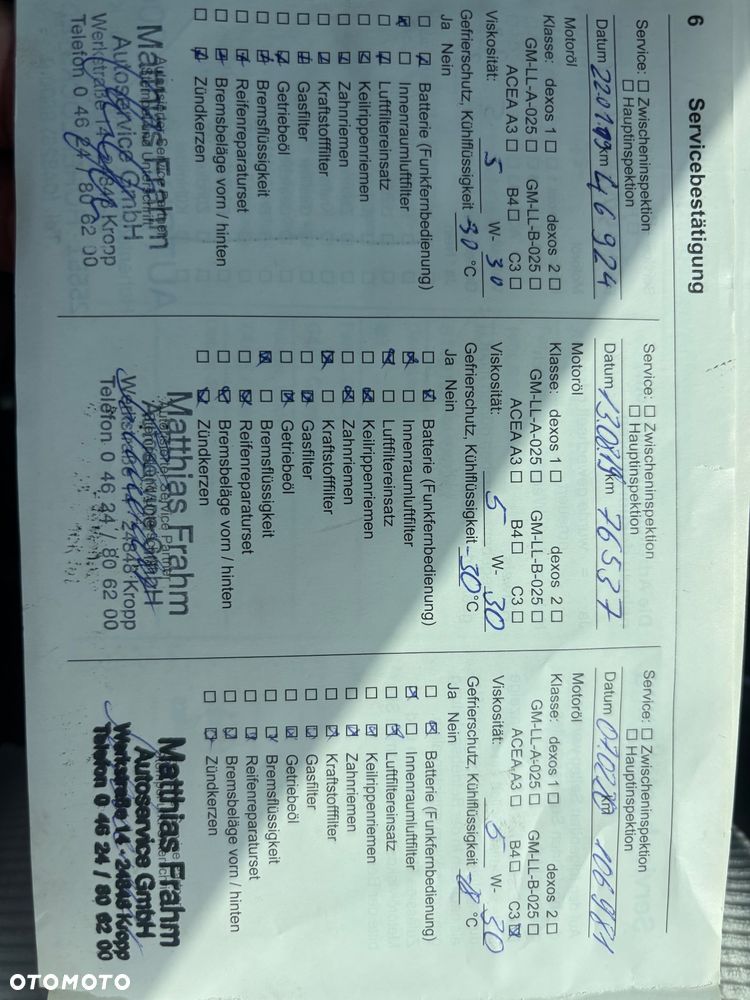 6 Servicebestätigung
Service: ☐ Zwischeninspektion
☐ Hauptinspektion
Datum 22.01.19 km 46924
Motoröl
Klasse: dexos 1 ☐ dexos 2 ☐
GM-LL-A-025 ☐ GM-LL-B-025 ☐
ACEA A3 ☐ B4 ☐ C3 ☐
Viskosität: 5 W- 30
Gefrierschutz, Kühlflüssigkeit -30 °C
Ja Nein
☐ ☒ Batterie (Funkfernbedienung)
☒ ☐ Innenraumluftfilter
☐ ☒ Luftfiltereinsatz
☐ ☒ Keilrippenriemen
☐ ☒ Zahnriemen
☐ ☒ Kraftstofffilter
☐ ☒ Gasfilter
☐ ☒ Getriebeöl
☐ ☒ Bremsflüssigkeit
☐ ☒ Reifenreparaturset
☐ ☒ Bremsbeläge vorn / hinten
☐ ☒ Zündkerzen
Matthias Frahm
Autoservice GmbH
Werkstraße 14 24848 Kropp
Telefon 0 46 24 / 80 62 00
Service: ☐ Zwischeninspektion
☐ Hauptinspektion
Datum 13.08.19 km 76537
Motoröl
Klasse: dexos 1 ☐ dexos 2 ☐
GM-LL-A-025 ☐ GM-LL-B-025 ☐
ACEA A3 ☐ B4 ☐ C3 ☐
Viskosität: 5 W- 30
Gefrierschutz, Kühlflüssigkeit -30 °C
Ja Nein
☐ ☒ Batterie (Funkfernbedienung)
☒ ☐ Innenraumluftfilter
☒ ☐ Luftfiltereinsatz
☐ ☒ Keilrippenriemen
☐ ☒ Zahnriemen
☒ ☐ Kraftstofffilter
☐ ☒ Gasfilter
☐ ☒ Getriebeöl
☒ ☐ Bremsflüssigkeit
☐ ☒ Reifenreparaturset
☐ ☒ Bremsbeläge vorn / hinten
☐ ☒ Zündkerzen
Matthias Frahm
Autoservice GmbH
Werkstraße 14 24848 Kropp
Telefon 0 46 24 / 80 62 00
Service: ☐ Zwischeninspektion
☐ Hauptinspektion
Datum 07.02.20 km 106981
Motoröl
Klasse: dexos 1 ☐ dexos 2 ☐
GM-LL-A-025 ☐ GM-LL-B-025 ☐
ACEA A3 ☐ B4 ☐ C3 ☒
Viskosität: 5 W- 30
Gefrierschutz, Kühlflüssigkeit °C
Ja Nein
☐ ☒ Batterie (Funkfernbedienung)
☒ ☐ Innenraumluftfilter
☐ ☒ Luftfiltereinsatz
☐ ☒ Keilrippenriemen
☐ ☒ Zahnriemen
☐ ☒ Kraftstofffilter
☐ ☒ Gasfilter
☐ ☒ Getriebeöl
☐ ☒ Bremsflüssigkeit
☐ ☒ Reifenreparaturset
☐ ☒ Bremsbeläge vorn / hinten
☐ ☒ Zündkerzen
Matthias Frahm
Autoservice GmbH
Werkstraße 14 - 24848 Kropp
Telefon 0 46 24 / 80 62 00
OTOMOTO